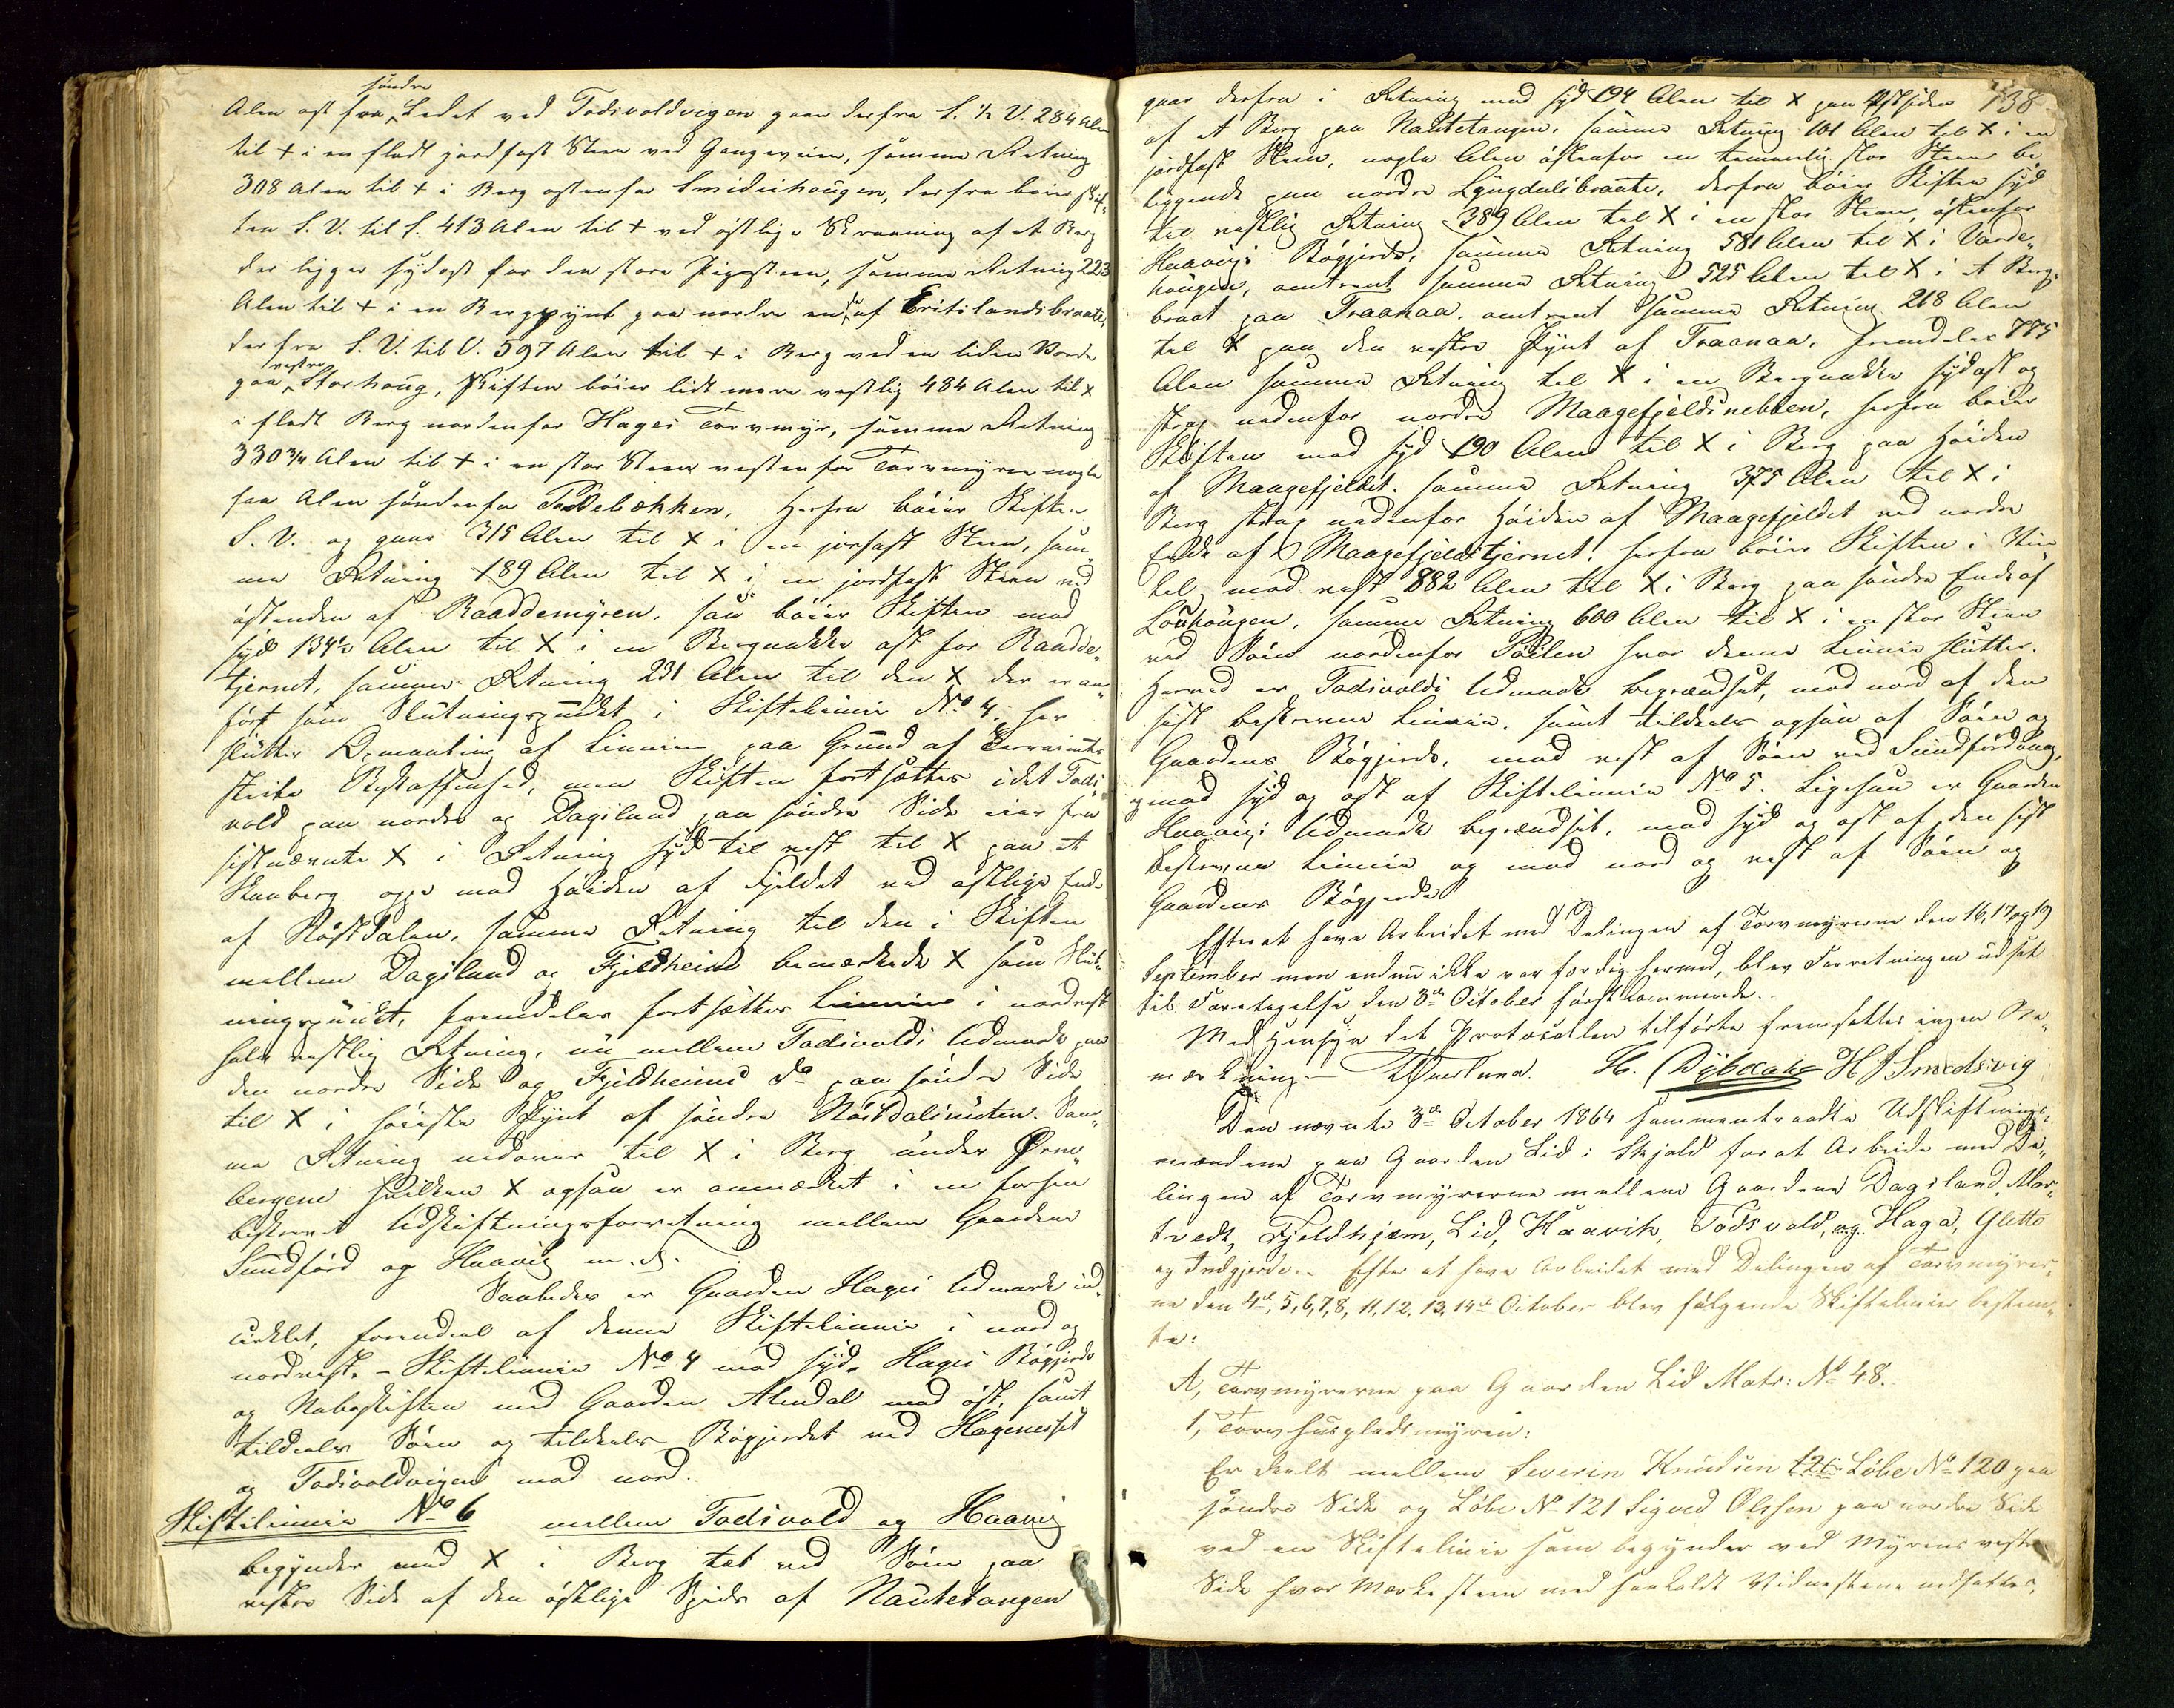 søndre
Alen ost fra Ledet ved Todivoldvigen gaar derfra S. ½ V. 284 Alen
til + i en fladt jordfast Steen ved Gangeveien, samme Retning
308 Alen til + i Berg ostenfor Smidiehougen, derfra bøier Skif-
ten S. V. til S. 413 Alen til + ved østlige Skraaning af et Berg
der ligger sydost for den store Pigsteen, samme Retning 223
Alen til + i en Bergpynt paa nordre ende af Eritilandsbraate,
derfra S. V. til V. 597 Alen til + i Berg ved en liden Varde
vestre
paa Storhoug, Skiften bøier lidt mere vestlig 484 Alen til x
i fladt Berg nordenfor Hages Torvmyr, samme Retning
330 3/4 Alen til + i en stor Steen vestenfor Torvmyren nogle
faa Alen søndenfor Paddebækken, Herfra bøier Skiften
S. V. og gaar 315 Alen til X i en jorfast Steen, sam-
me Retning 189 Alen til X i en jordfast Steen ved
østenden af Raaddemyren, saa bøier Skiften mod
syd 134½ Alen til X i en Bergnakke ost for Raadde-
tjernet, samme Retning 231 Alen til den X der er an-
ført som Slutningspunkt i Skiftelinie No 4, her
slutter Opmaaling af Linien paa Grund af Terrainets
steile Beskaffenhed, men Skiften fortsættes idet Todi-
vold paa nordre og Dagsland paa søndre Side eier fra
sistnævnte X i Retning syd til vest til X paa et
Skaaberg oppe mod Høiden af Fjeldet ved østlige Ende
af Røstdalen, samme Retning til den i Skiften
mellem Dagsland og Fjeldheim bemærkede X som Slut-
ningspunkt, fremdeles fortsætter Linien i nordvest
halv vestlig Retning, nu mellem Todivolds Udmark paa
den nordre Side og Fjeldheims do paa søndre Side
til X i høieste Pynt af søndre Røstdalsnuten. Sam-
me Retning nedover til X i Berg under Ørne-
bergene hvilken X ogsaa er anmærket i en forhen
beskrevet Udskiftningsforretning mellem Gaardene
Sundførd og Haavig m. d.
Saaledes er Gaarden Hages Udmark ind-
cirklet, foruden af denne Skiftelinie i nord og
nordvest. - Skiftelinie No 4 mod syd, Hages Bøgjerde
og Naboskiften med Gaarden Alendal mod øst, samt
tildeels Søen og tildeels Bøgjerdet ved Hageneset
og Todivoldvigen mod nord.
Skiftelinie No 6 mellem Todivold og Haavig
begynder med X i Berg tæt ved Søen paa
vestre Side af den østlige Spids af Nautetangen
138
gaar derfra i Retning mod syd 194 Alen til X paa Østsiden
af et Berg paa Nautetangen, samme Retning 101 Alen til X i en
jordfast Steen, nogle Alen østenfor en temmelig stor Steen be-
liggende paa nordre Lyngdalsbraate, derfra bøier Skiften syd
til vestlig Retning 389 Alen til X i en stor Steen, østenfor
Haavigs Bøgjerde, samme Retning 581 Alen til X i Varde-
haugen, omtrent samme Retning 525 Alen til X i et Berg-
braat paa Traanaa, omtrent samme Retning 218 Alen
til X paa den vestre Pynt af Traanaa, fremdeles 775
Alen samme Retning til X i en Bergnakke sydost og
strax nedenfor nordre Maagefjeldsnebben, herfra bøier
Skiften mod syd 190 Alen til X i Berg paa Høiden
af Maagefjeldet. samme Retning 375 Alen til X i
Berg strax nedenfor Høiden af Maagefjeldet ved nordre
Ende af Maagefjeldstjernet, herfra bøier Skiften i Vin-
kel mod vest 882 Alen til X i Berg paa søndre Ende af
Louhaugen, samme Retning 600 Alen til X i en stor Steen
ved Søen nordenfor Pøilen hvor denne Linie slutter.
Herved er Todivolds Udmark begrændset, mod nord af den
sist beskrevne Linie, samt tildeels ogsaa af Søen og
Gaardens Bøgjerde, mod vest af Søen ved Sundførdvaag,
mod syd og ost af Skiftelinie No 5. Ligesaa er Gaarden
Haavigs Udmark begrændset, mod syd og ost af den sist
beskrevne Linie og mod nord og vest af Søen og
Gaardens Bøgjerde
Efter at have Arbeidet med Delingen af Torvmyrerne den 16, 17 og 19
September men endnu ikke var færdig hermed, blev Forretningen udsat
til Foretagelse den 3de October førstkommende.
Med Hensyn det Protocollen tilførte fremsattes ingen Be-
mærkning. H. Dybdahl H J Smedsvig
Den nævnte 3de October 1864 sammentraadte Udskiftnings-
mændene paa Gaarden Lid i Skjold for at Arbeide med De-
lingen af Torvmyrerne mellem Gaardene Dagsland, Mor-
tvedt, Fjeldhjem, Lid, Haavik, Todsvold, og Haga, Gletto
og Indgjerde. Efter at have Arbeidet med Delingen af Torvmyrer-
ne den 4de, 5, 6, 7, 8, 11, 12, 13, 14de October blev følgende Skiftelinier bestem-
te:
A, Torvmyrerne paa Gaarden Lid Matr: No 48.
1, Torvhuspladsmyren:
Er deelt mellem Severin Knudsen Løbe No 120 paa
søndre Side og Løbe No 121 Sigved Olsson paa nordre Side
ved en Skiftelinie som begynder ved Myrens vestre
Side hvor Mærkesteen med saakaldt Vidnestene nedsattes,